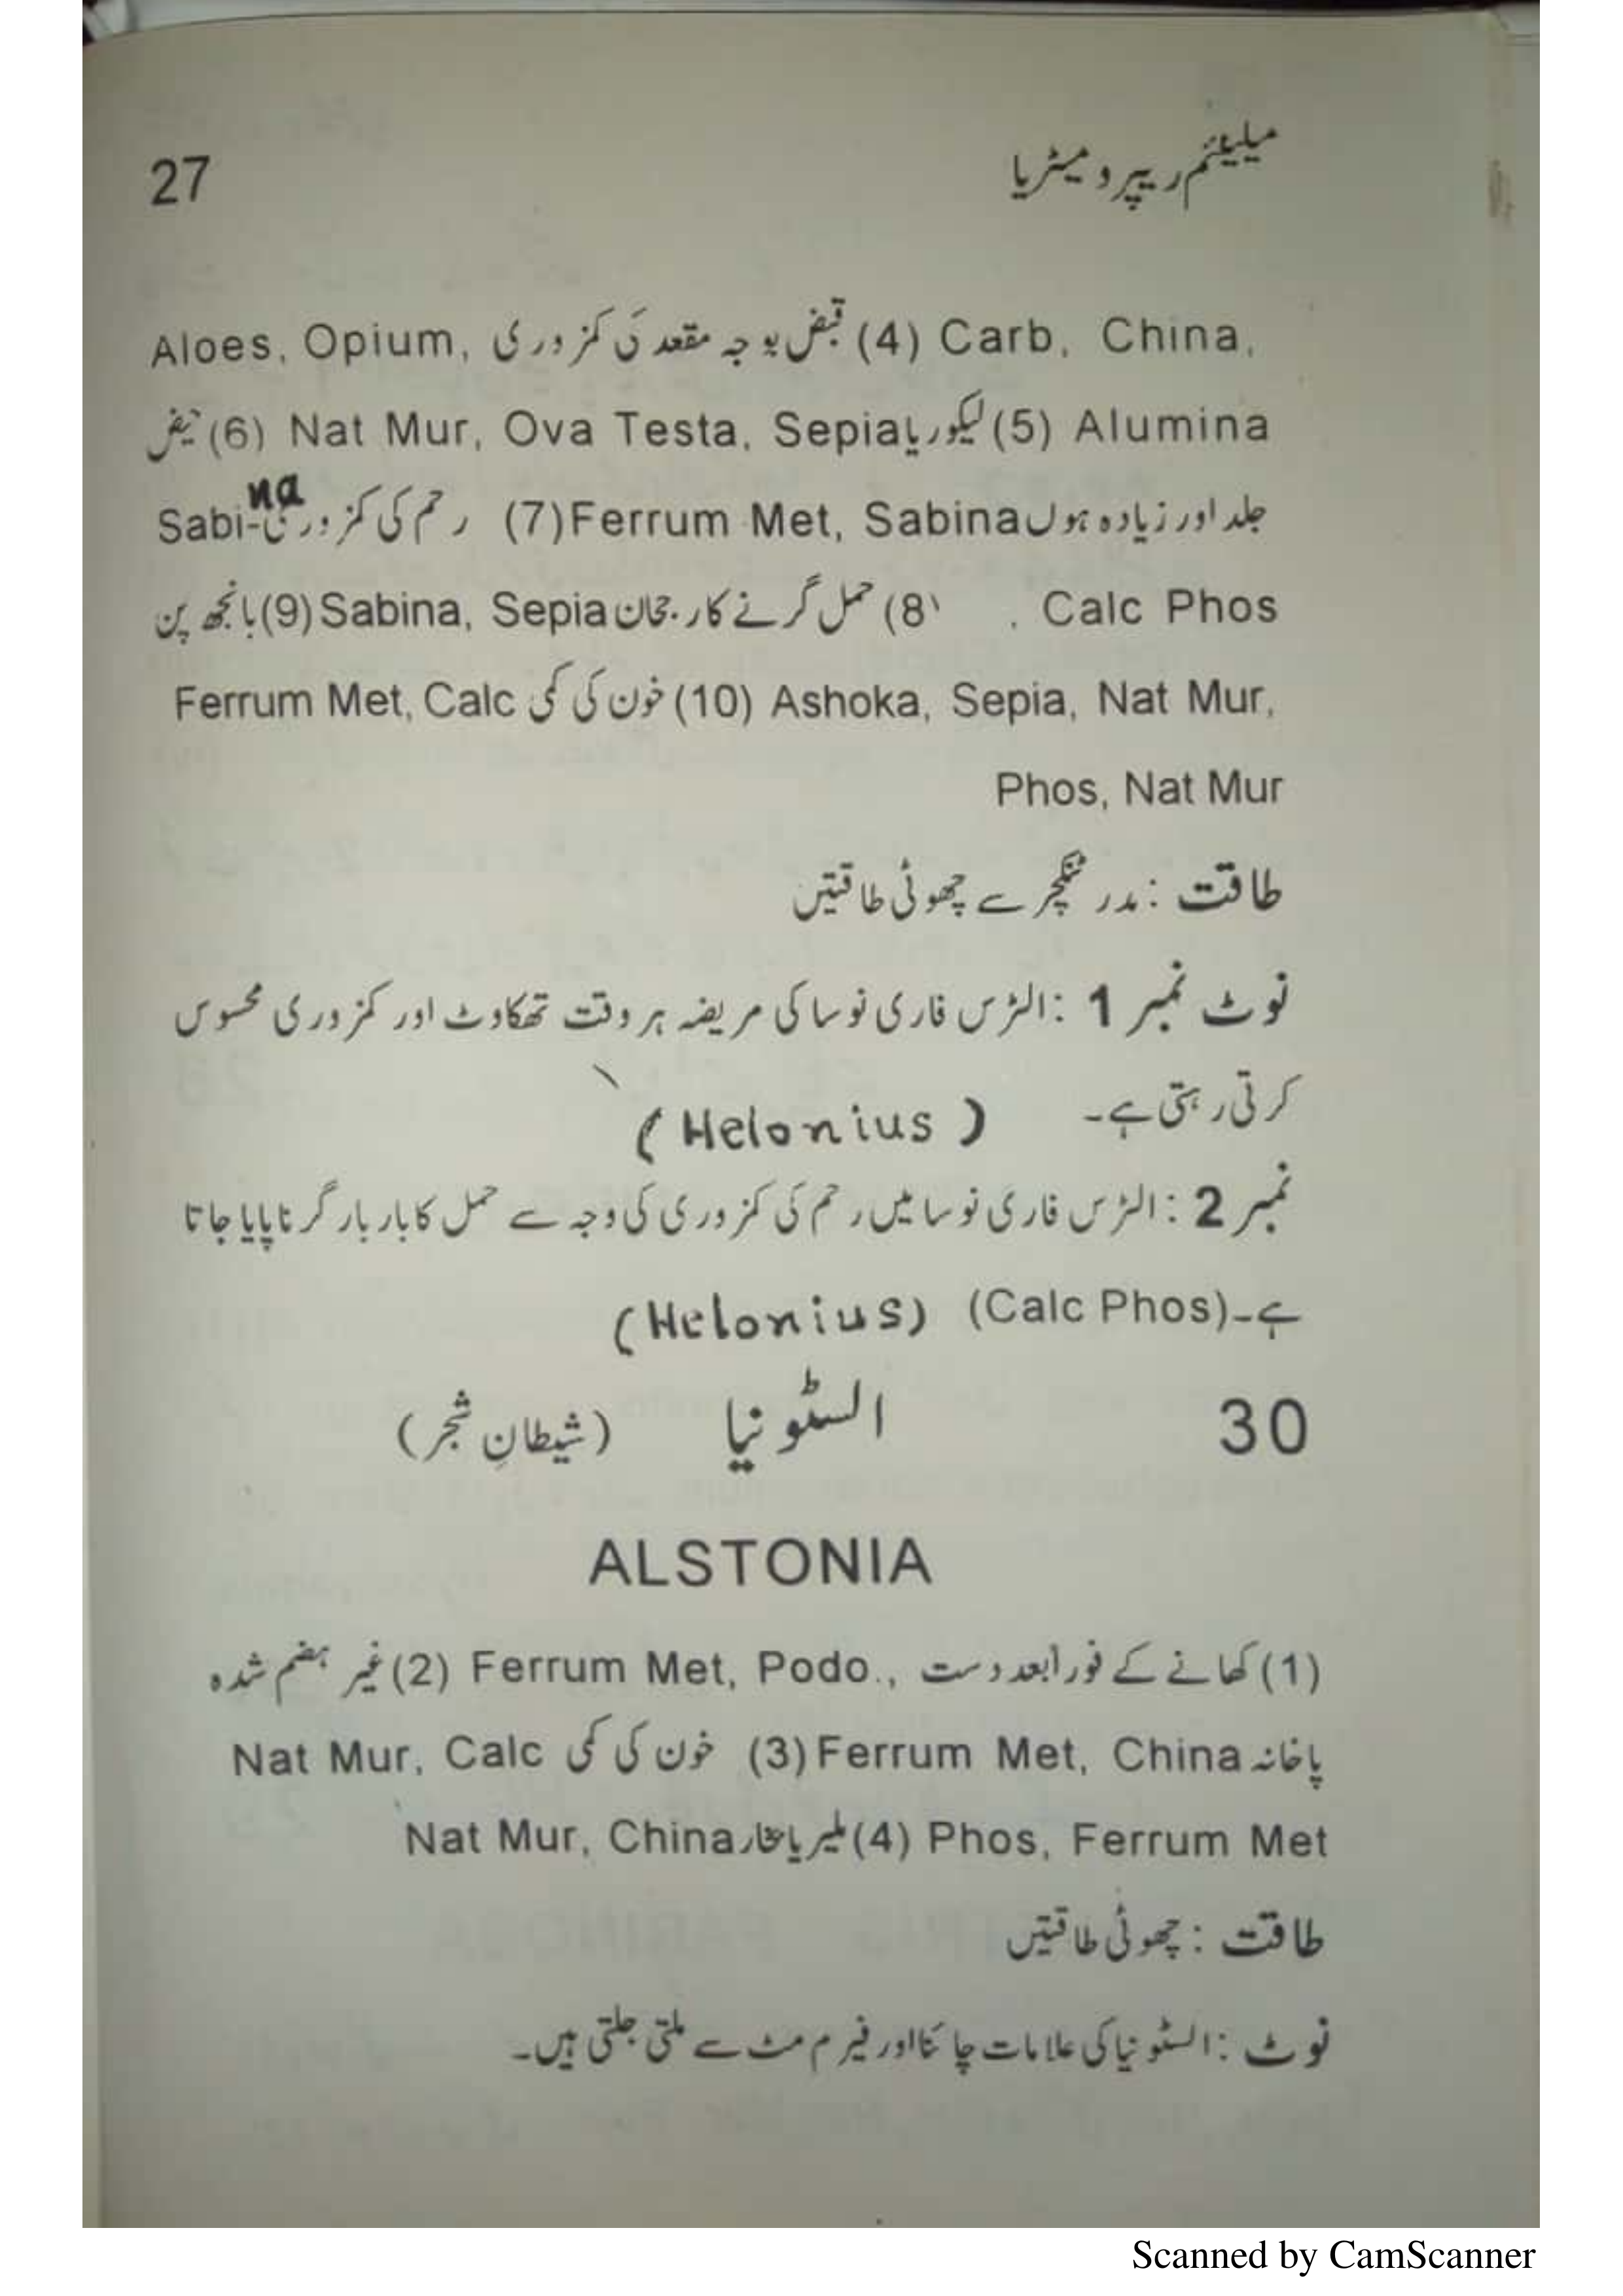 27 میلینئم ریپرو میٹریا
Aloes, Opium, قبض بوجہ مقعد کی کمزوری (4) Carb, China,
حیض (6) Nat Mur, Ova Testa, Sepia لیکوریا (5) Alumina
Sabi-na رحم کی کمزوری (7) Ferrum Met, Sabina جلد اور زیادہ ہوں
بانجھ پن (9) Sabina, Sepia حمل گرنے کا رجحان (8) . Calc Phos
Ferrum Met, Calc خون کی کمی (10) Ashoka, Sepia, Nat Mur,
Phos, Nat Mur
طاقت : مدر ٹنکچر سے چھوٹی طاقتیں
نوٹ نمبر 1 : الٹرس فاری نوسا کی مریضہ ہر وقت تھکاوٹ اور کمزوری محسوس
کرتی رہتی ہے۔ (Helonius)
نمبر 2 : الٹرس فاری نوسا میں رحم کی کمزوری کی وجہ سے حمل کا بار بار گرنا پایا جاتا
ہے۔ (Calc Phos) (Helonius)
30 السٹونیا (شیطانِ شجر)
ALSTONIA
(1) کھانے کے فوراً بعد دست Ferrum Met, Podo., (2) غیر ہضم شدہ
پاخانہ Ferrum Met, China (3) خون کی کمی Nat Mur, Calc
Phos, Ferrum Met (4) ملیریا بخار Nat Mur, China
طاقت : چھوٹی طاقتیں
نوٹ : السٹونیا کی علامات چائنا اور فیرم مٹ سے ملتی جلتی ہیں۔
Scanned by CamScanner